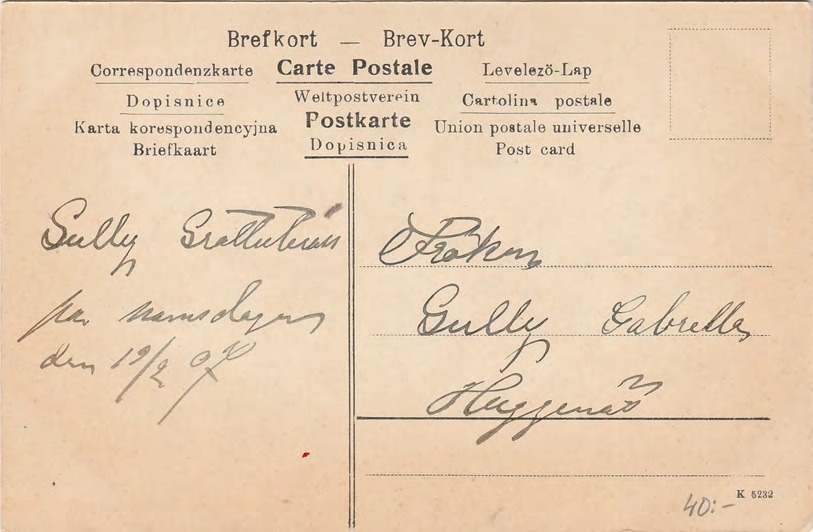 Brefkort — Brev-Kort
Correspondenzkarte Carte Postale Levelezö-Lap
Dopisnice Weltpostverein Cartolina postale
Karta korespondencyjna Postkarte Union postale universelle
Briefkaart Dopisnica Post card
Gully Gratuleras
på namsdagen
den 19/2 07
Fröken
Gully Gabriella
Huggenäs
K 5232
40:-